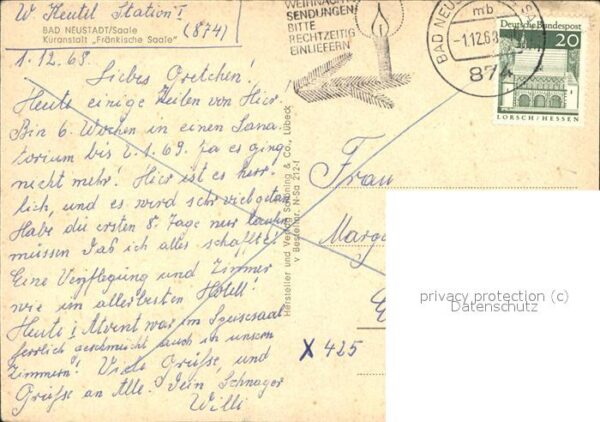 W. Heutel Station I
BAD NEUSTADT/Saale (874)
Kuranstalt „Fränkische Saale"
1.12.68.
Liebes Gretchen!
Heute einige Zeilen von Hier.
Bin 6. Wochen in einen Sana-
torium bis 2.1.69. Ja es ging
nicht mehr! Hier ist es herr-
lich, und es wird sehr viel getan
Habe die ersten 8. Tage nur laufen
müssen das ich alles schaffte!
Eine Verpflegung und Zimmer
wie im allerbesten Hotell!
Heute 1 Advent war im Speisesaal
herrlich geschmückt auch in unsern
Zimmern! Viele Grüße, und
Grüße an Alle. Dein Schwager
Willi
Hersteller und Verlag Schöning & Co., Lübeck
Bestellnr. N-Sa 212-f
WEIHNACHTS
SENDUNGEN
BITTE
RECHTZEITIG
EINLIEFERN
BAD NEUSTADT
mb
-1.12.68
874
Deutsche Bundespost
20
LORSCH/HESSEN
Frau
X 425
privacy protection (c)
Datenschutz